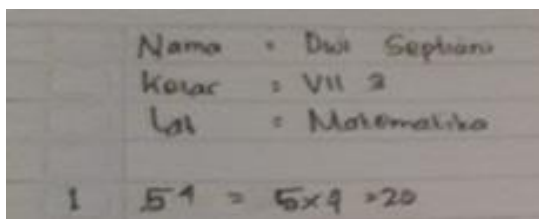 Nama = Dwi Septiani
Kelas = VII 2
Lat = Matematika
1 5⁴ = 5x4 = 20